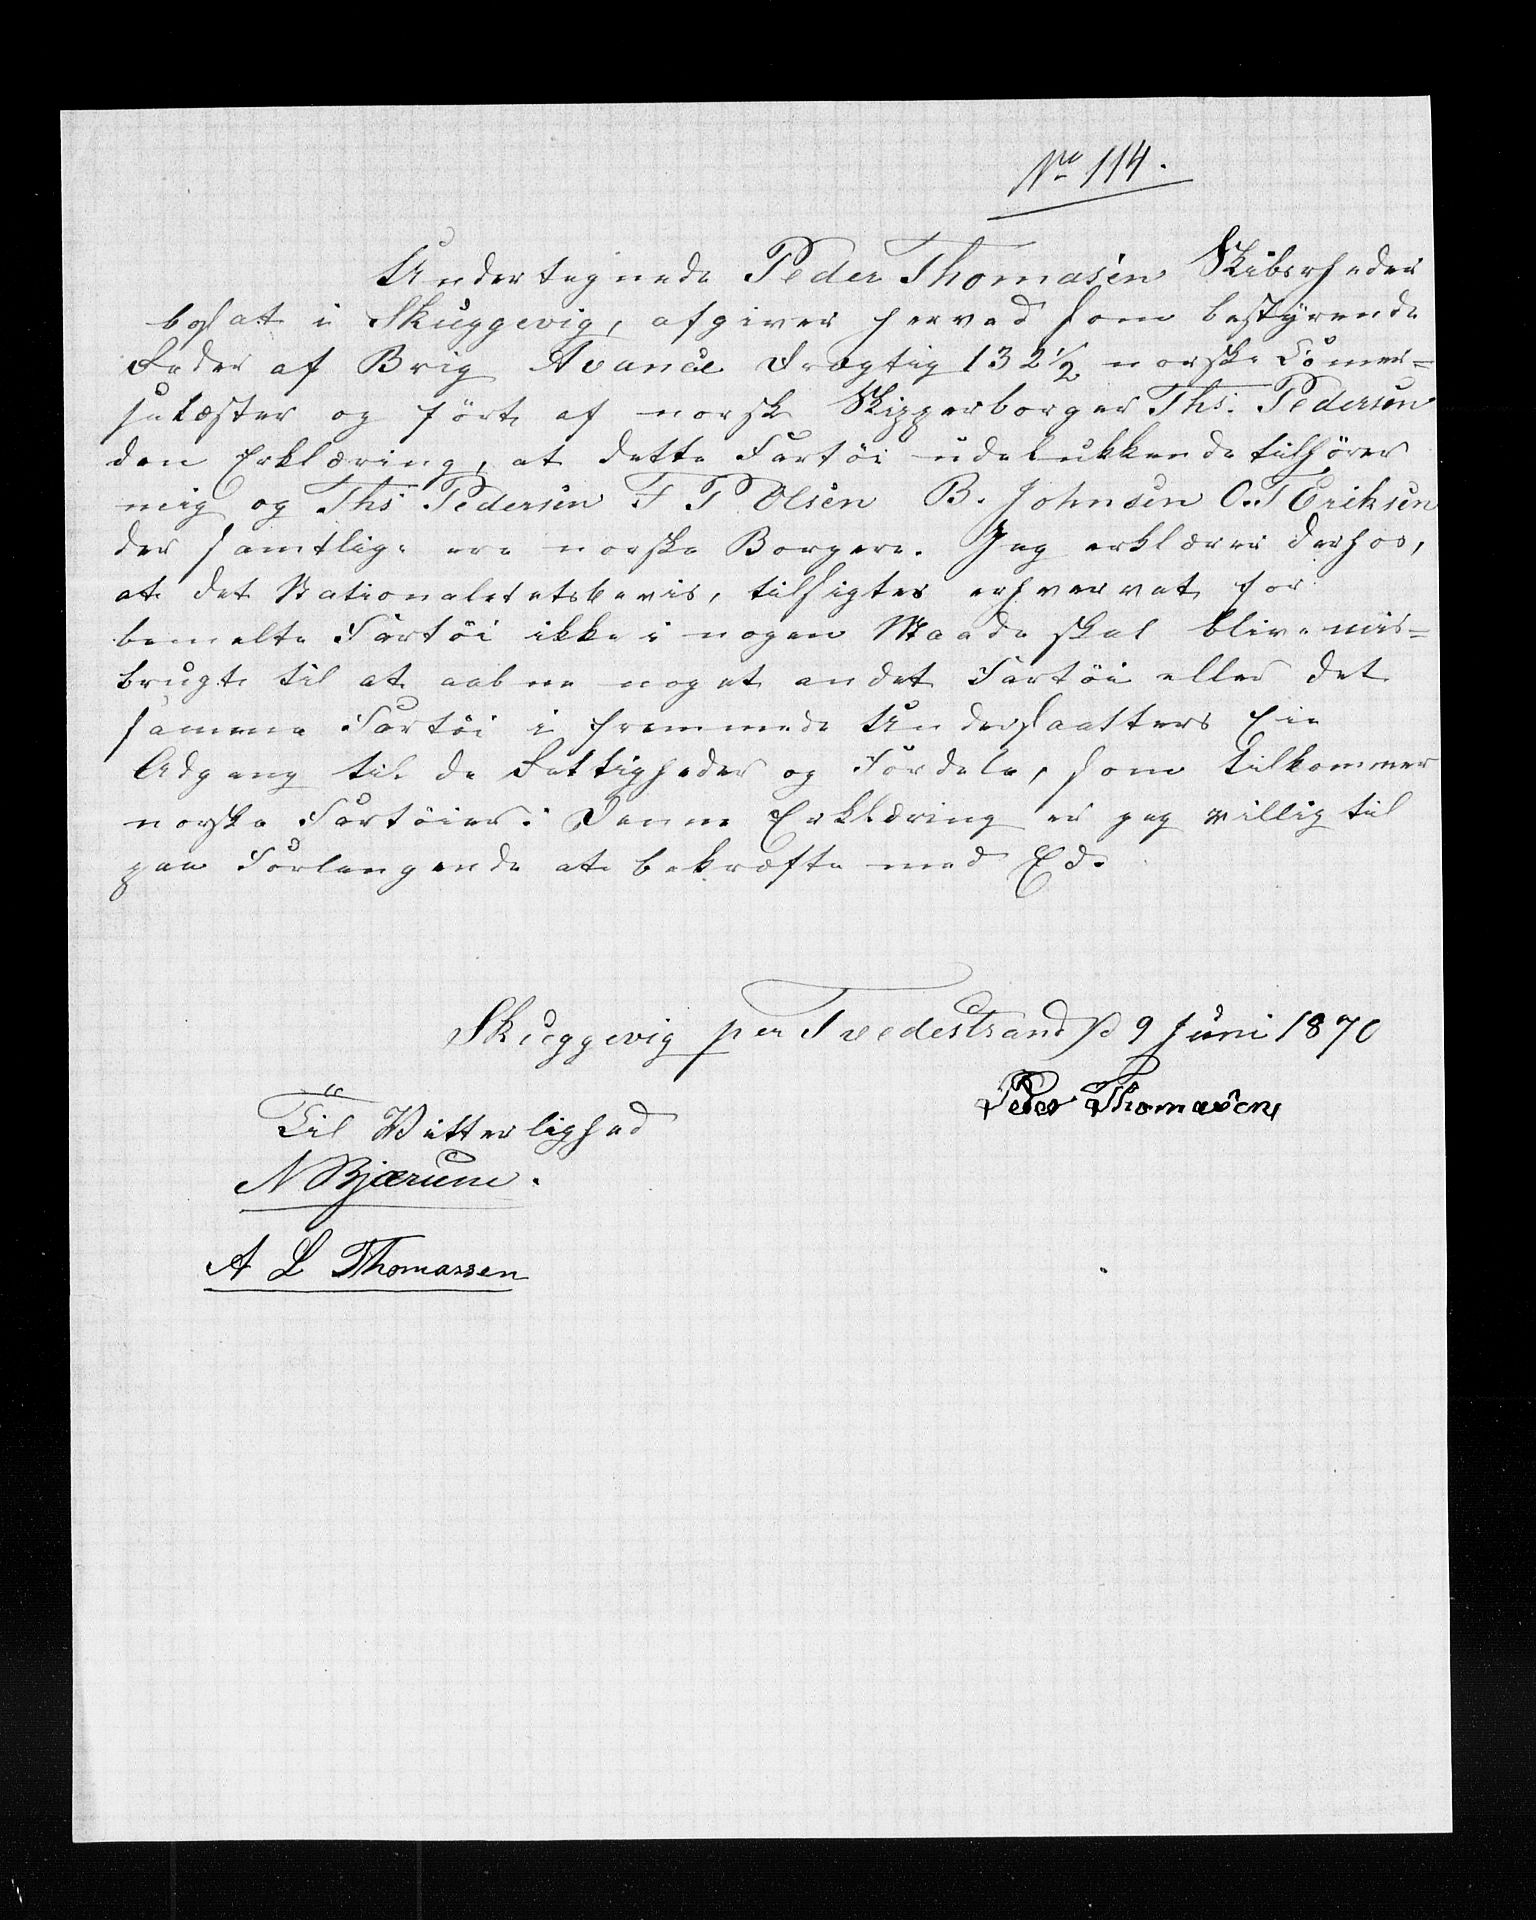 No 114.
Undertegnede Peder Thomasen Skibsrheder
bosat i Skuggevig, afgiver herved som bestyrende
Reder af Brig Avance drægtig 132 1/2 norske Comer=
selæster og ført af norsk Skipperborger Ths. Pedersen
den Erklæring, at dette Fartöi udelukkende tilhører
mig og Ths Pedersen F P Olsen B. Johnsen O. T Eriksen
der samtlige ere norske Borgere. Jeg erklærer derhos,
at det Nationalitetsbevis, tilsigtes erhvervet for
bemelte Fartöi ikke i nogen Maade skal blive mis=
brugt til at aabne noget andet Fartöi eller det
samme Fartöi i fremmede Undersaatters Eie
Adgang til de Rettigheder og Fordele, som tilkommer
norske Fartöier. Denne Erklæring er jeg villig til
paa Forlangende at bekræfte med Ed.
Skuggevig per Tvedestrand d 9 Juni 1870
Peder Thomasen
Til Vitterlighed
N Bjærum.
A L Thomassen